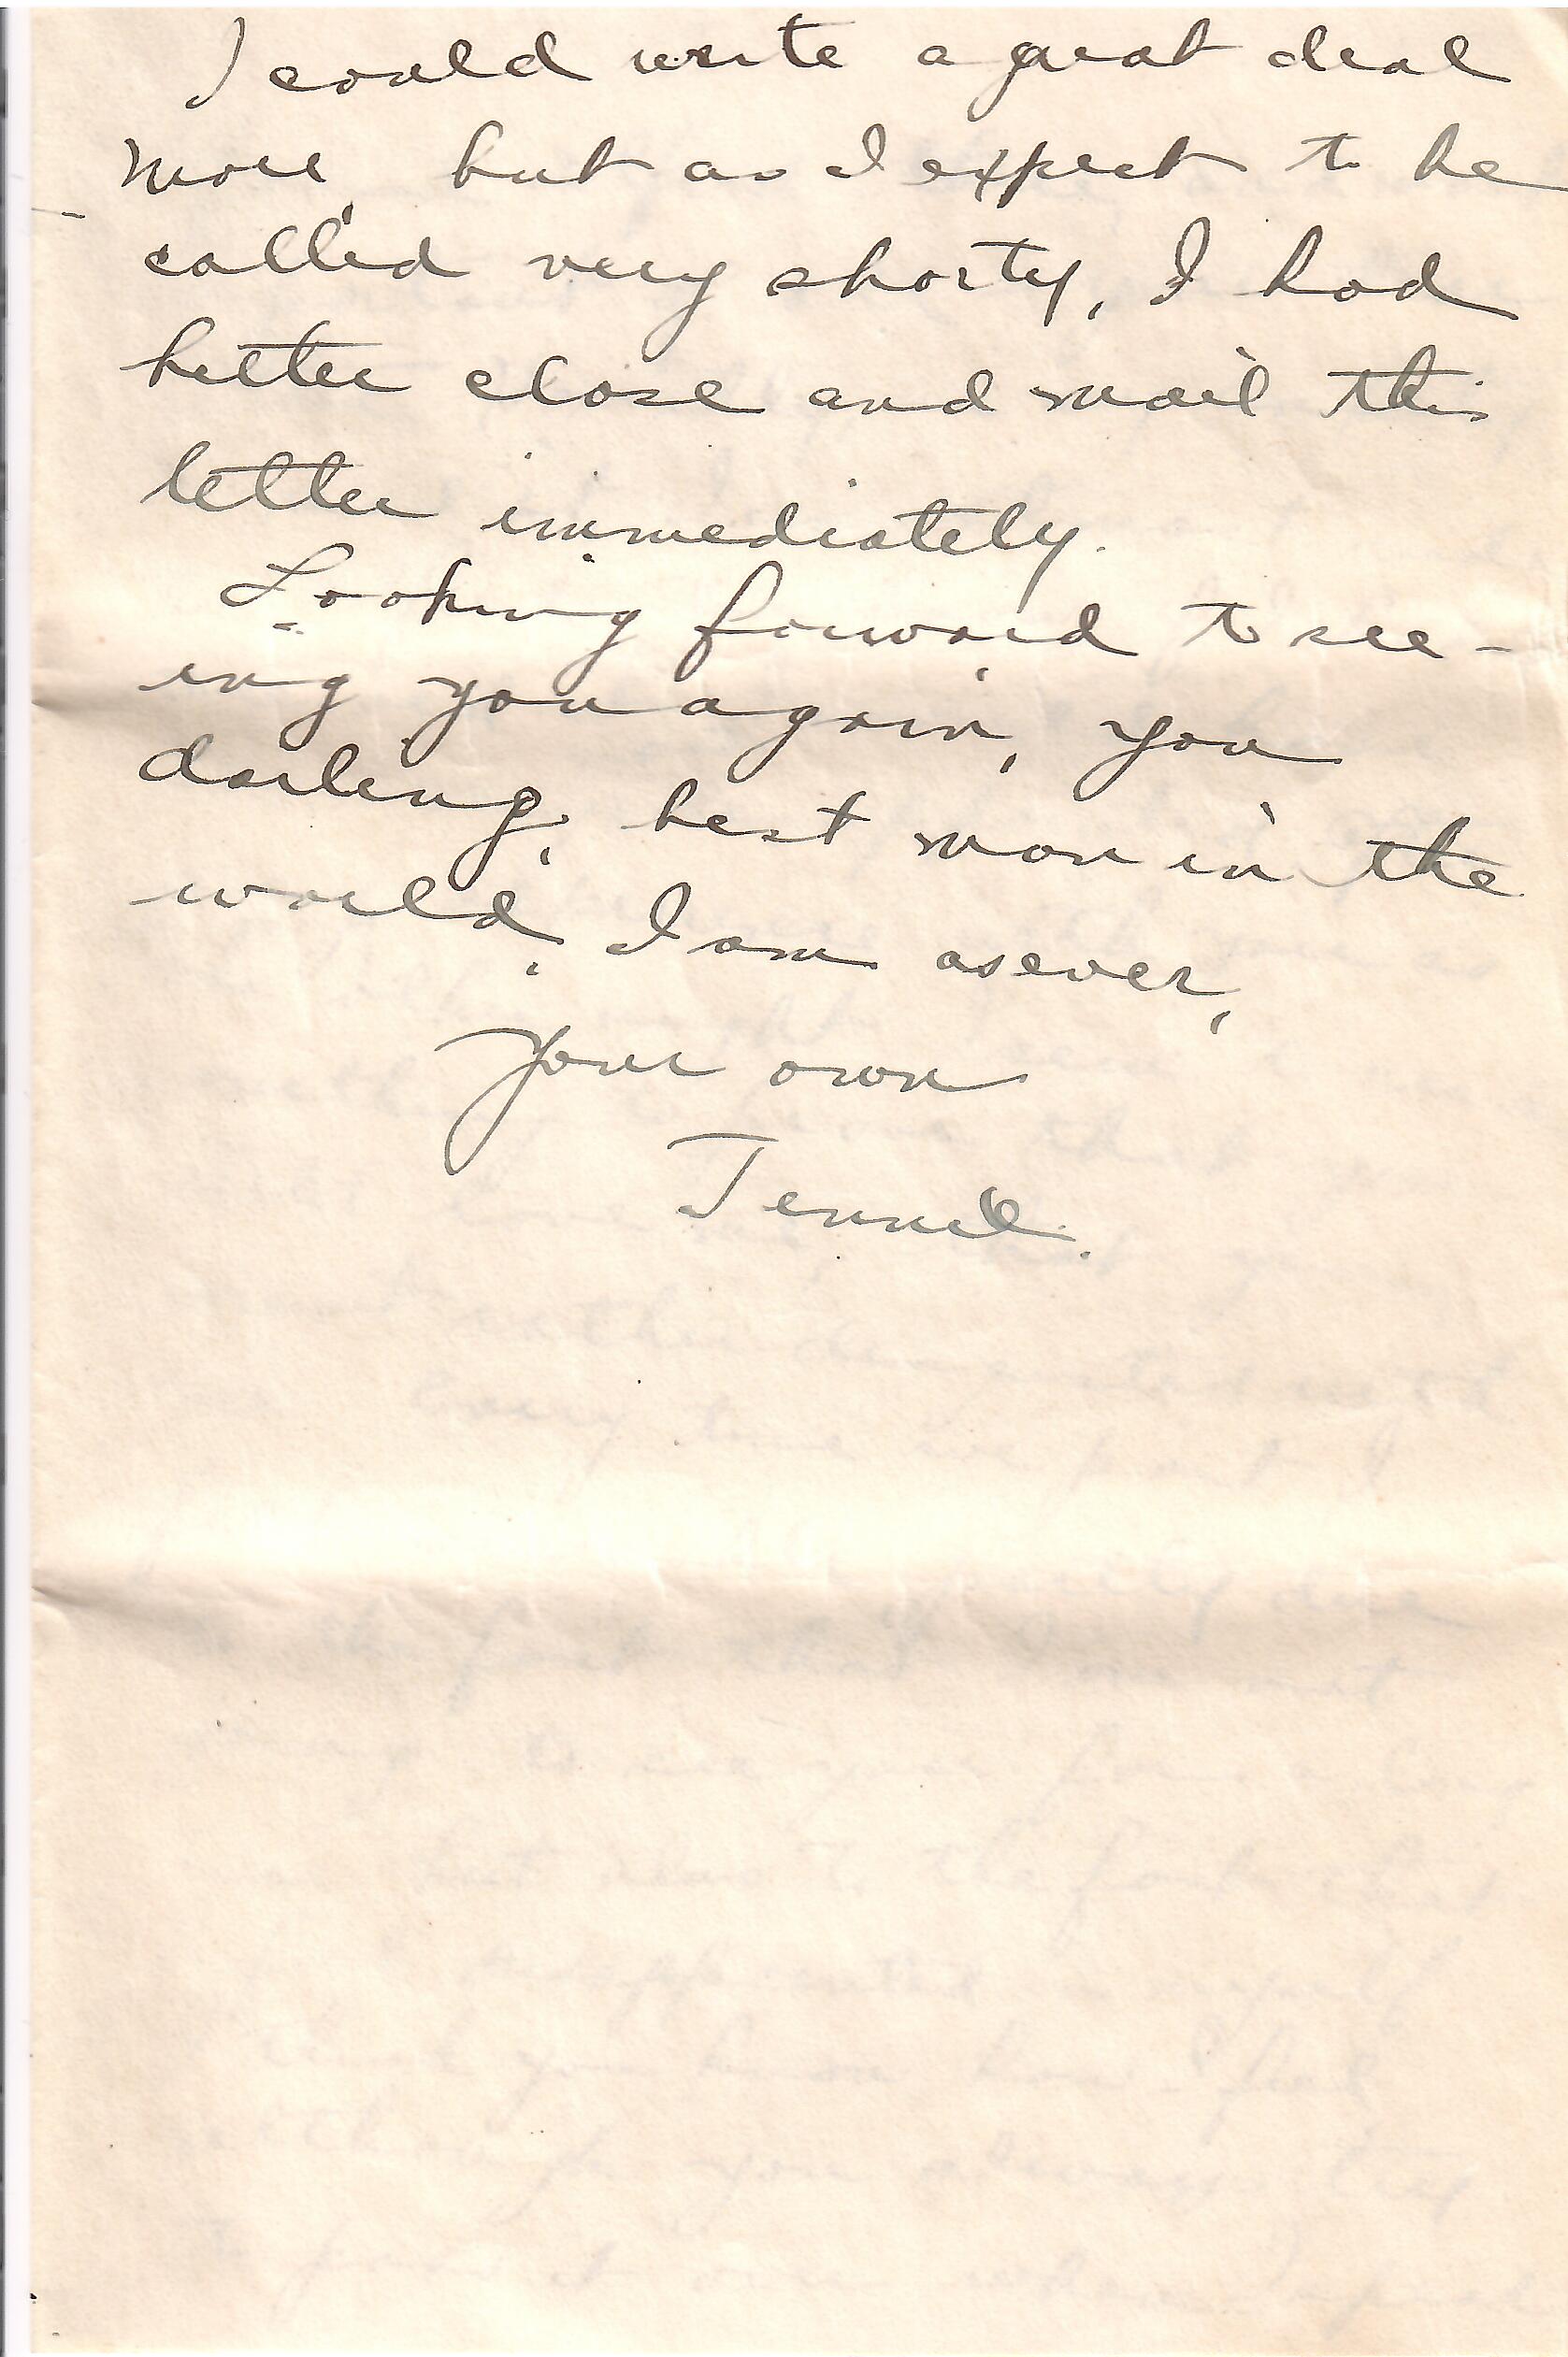 I could write a great deal
more, but as I expect to be
called very shorty, I had
better close and mail this
letter immediately.
Looking forward to see-
ing you again, you
darling, best man in the
world, I am as ever,
Your own
Jennie.